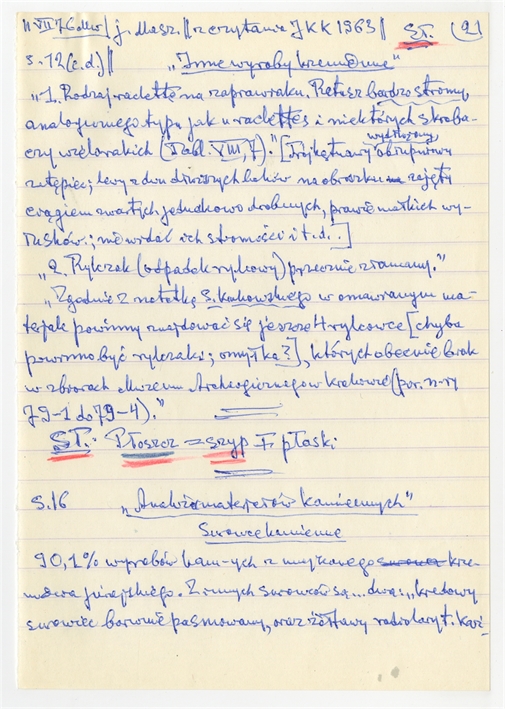 11 VII 76 | j. Masz. || z czytania JKK 1963 || ST. (21)
s. 12 (c.d.) || „Inne wyroby krzemienne"
„1. Rodzaj raclette na zaprawiaku. Retusz bardzo stromy,
analogicznego typu jak u raclettes i niektórych skroba-
wydłużony,
czy wzelarakich (Tabl. VIII, 7)." [Trójkątnawy obrupniowy
zstępiec; lewy z dwu dłuższych boków na obrazku zajęty
ciągiem zwartych, jednakowo drobnych, prawie maleńkich wy-
rusków; nie widać ich stromości i t.d.]
„2. Rylczak (odpadek rylcowy) przecznie złamany."
„Zgodnie z notatką S. Krukowskiego w omawianym ma-
teriale powinny znajdować się jeszcze 4 rylcowce [chyba
powinno być rylczaki; omyłka?], których obecnie brak
w zbiorach Muzeum Archeologicznego w Krakowie (por. n-ry
79-1 do 79-4)."
ST.: Płoszcz = szyp I płaski
s. 16 „Analiza materiałów kamiennych"
Surowce kamienne
90,1% wyrobów kam-ych z miejscowego surowca krze-
mienia jurajskiego. Z innych surowców są... dwa: „kredowy
surowiec barwnie pasmowany, oraz żółtawy radiolaryt. Każ-